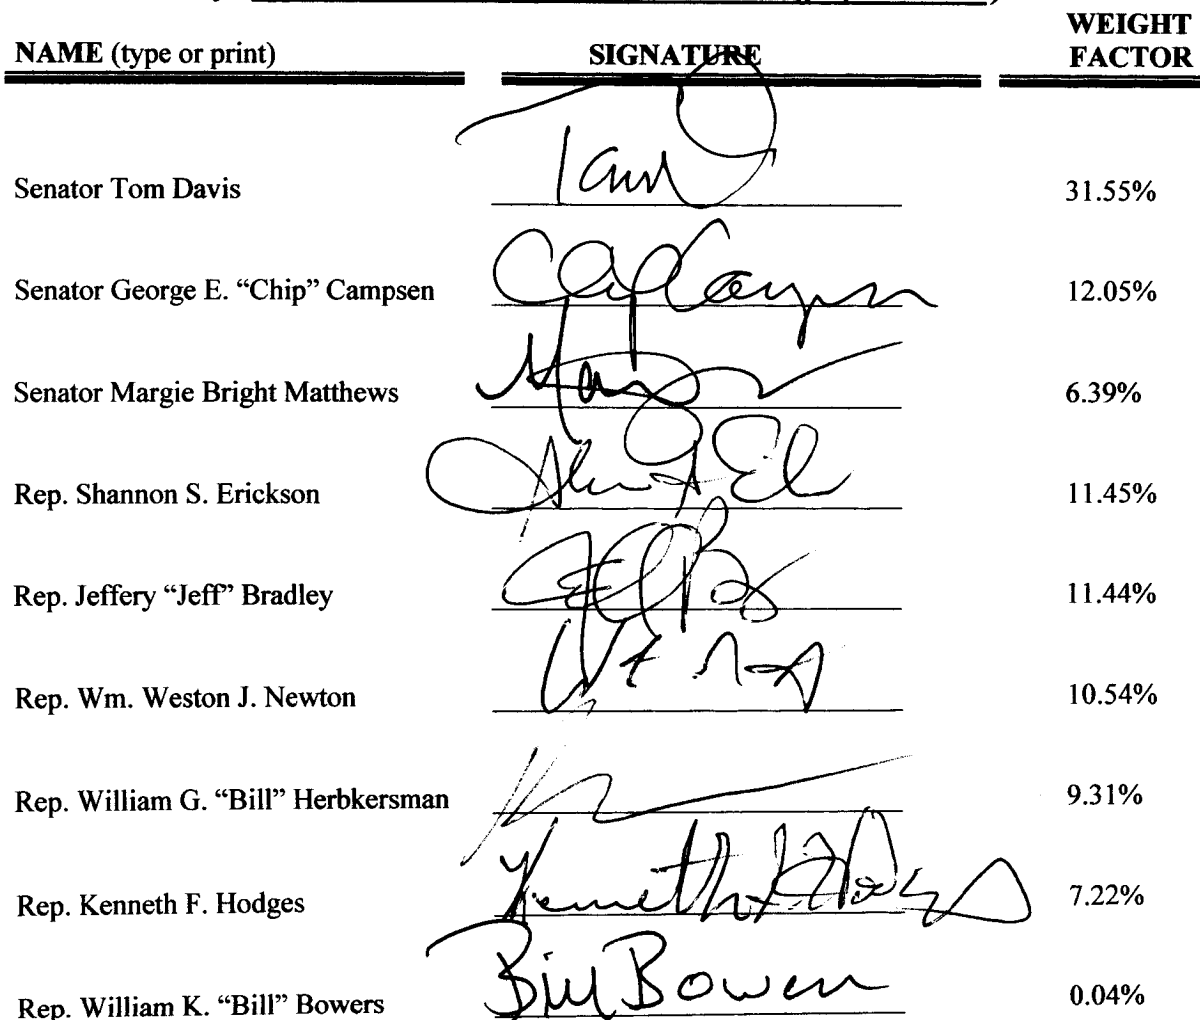 WEIGHT
NAME (type or print) SIGNATURE FACTOR
Senator Tom Davis 31.55%
Senator George E. “Chip” Campsen 12.05%
Senator Margie Bright Matthews 6.39%
Rep. Shannon S. Erickson 11.45%
Rep. Jeffery “Jeff” Bradley 11.44%
Rep. Wm. Weston J. Newton 10.54%
Rep. William G. “Bill” Herbkersman 9.31%
Rep. Kenneth F. Hodges Kenneth F Hodges 7.22%
Rep. William K. “Bill” Bowers Bill Bowers 0.04%